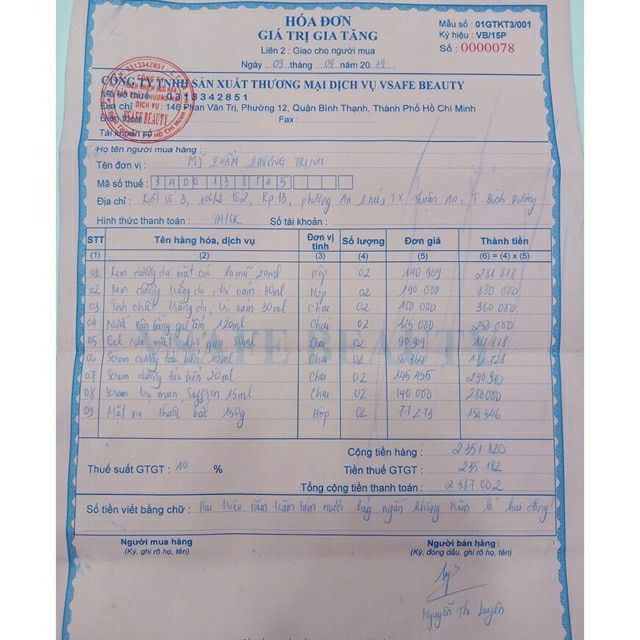 HÓA ĐƠN
GIÁ TRỊ GIA TĂNG
Liên 2 : Giao cho người mua
Ngày 09 tháng 09 năm 2019
Mẫu số : 01GTKT3/001
Ký hiệu : VB/15P
Số : 0000078
CÔNG TY TNHH SẢN XUẤT THƯƠNG MẠI DỊCH VỤ VSAFE BEAUTY
Mã số thuế : 0313342851
Địa chỉ : 146 Phan Văn Trị, Phường 12, Quận Bình Thạnh, Thành Phố Hồ Chí Minh
Điện thoại : Fax :
Tài khoản số :
Họ tên người mua hàng :
Tên đơn vị : MỸ PHẨM PHƯƠNG TRINH
Mã số thuế :
Địa chỉ : Kiốt số 3, Kp 1B, phường An Phú, TX Thuận An, T. Bình Dương
Hình thức thanh toán : TM/CK Số tài khoản :
STT Tên hàng hóa, dịch vụ Đơn vị tính Số lượng Đơn giá Thành tiền
(1) (2) (3) (4) (5) (6) = (4) x (5)
01 Kem dưỡng da mặt 20ml Hộp 02 140 909 281 818
02 Kem dưỡng trắng da, trị nám 30ml Hộp 02 190 000 380 000
03 Tinh chất trắng da, trị nám 30ml Chai 02 180 000 360 000
04 Nước cân bằng giữ ẩm 120ml Chai 02 125 000 250 000
05 Gel rửa mặt 02 90 909 181 818
06 Serum dưỡng tảo biển 10ml Chai 02
07 Serum dưỡng tảo biển 20ml Chai 02 145 455 290 910
08 Serum trị mụn Saffron 15ml Chai 02 140 000 280 000
09 Mặt nạ thuốc bắc 150g Hộp 02 77 273 154 546
VSAFE BEAUTY
Cộng tiền hàng : 2 351 820
Thuế suất GTGT : 10 % Tiền thuế GTGT : 235 182
Tổng cộng tiền thanh toán : 2 587 002
Số tiền viết bằng chữ : Hai triệu năm trăm tám mươi bảy ngàn không trăm lẻ hai đồng
Người mua hàng Người bán hàng
(Ký, ghi rõ họ, tên) (Ký, đóng dấu, ghi rõ họ, tên)
Nguyễn Thị Luyến